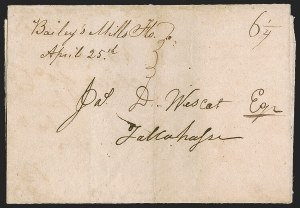 Bailey's Mills Flo.
April 25th
6 1/4
Jas. D. Wescot Eqr
Tallahasse